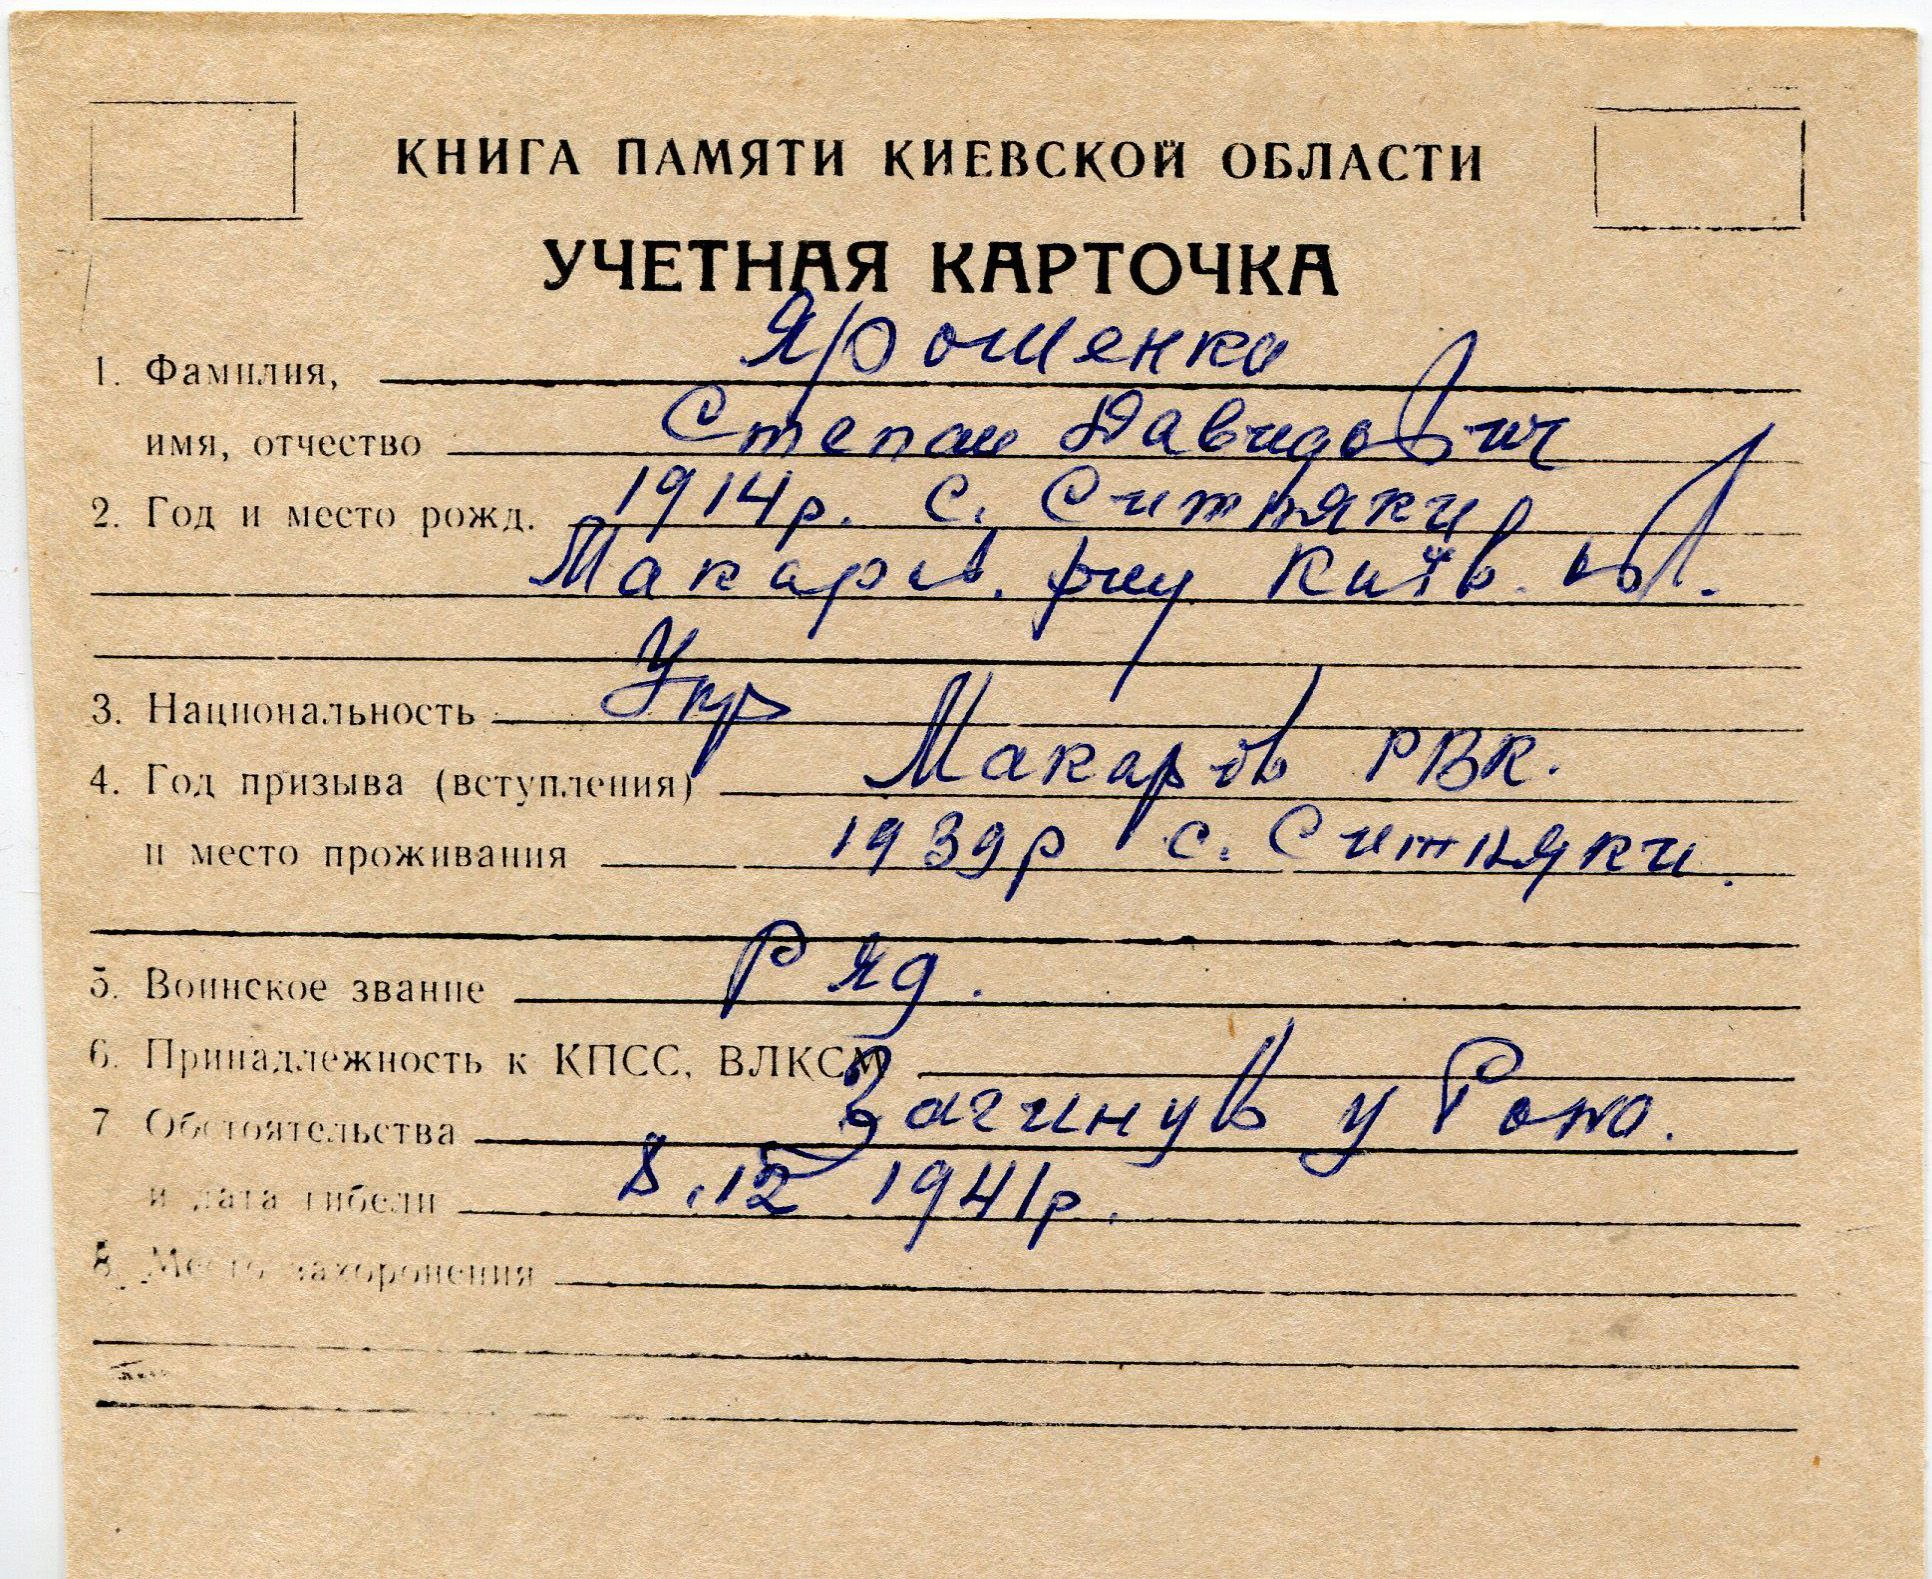 КНИГА ПАМЯТИ КИЕВСКОЙ ОБЛАСТИ
УЧЕТНАЯ КАРТОЧКА
1. Фамилия, Ярошенко
имя, отчество Степан Давидович
2. Год и место рожд. 1914р. с. Ситняки
Макарів. р-ну Київ. обл.
3. Национальность Укр
4. Год призыва (вступления) Макарів РВК.
и место проживания 1939р с. Ситняки.
5. Воинское звание Ряд.
6. Принадлежность к КПСС, ВЛКСМ
7 Обстоятельства Загинув у
и дата гибели 8.12 1941р.
8. Место захоронения